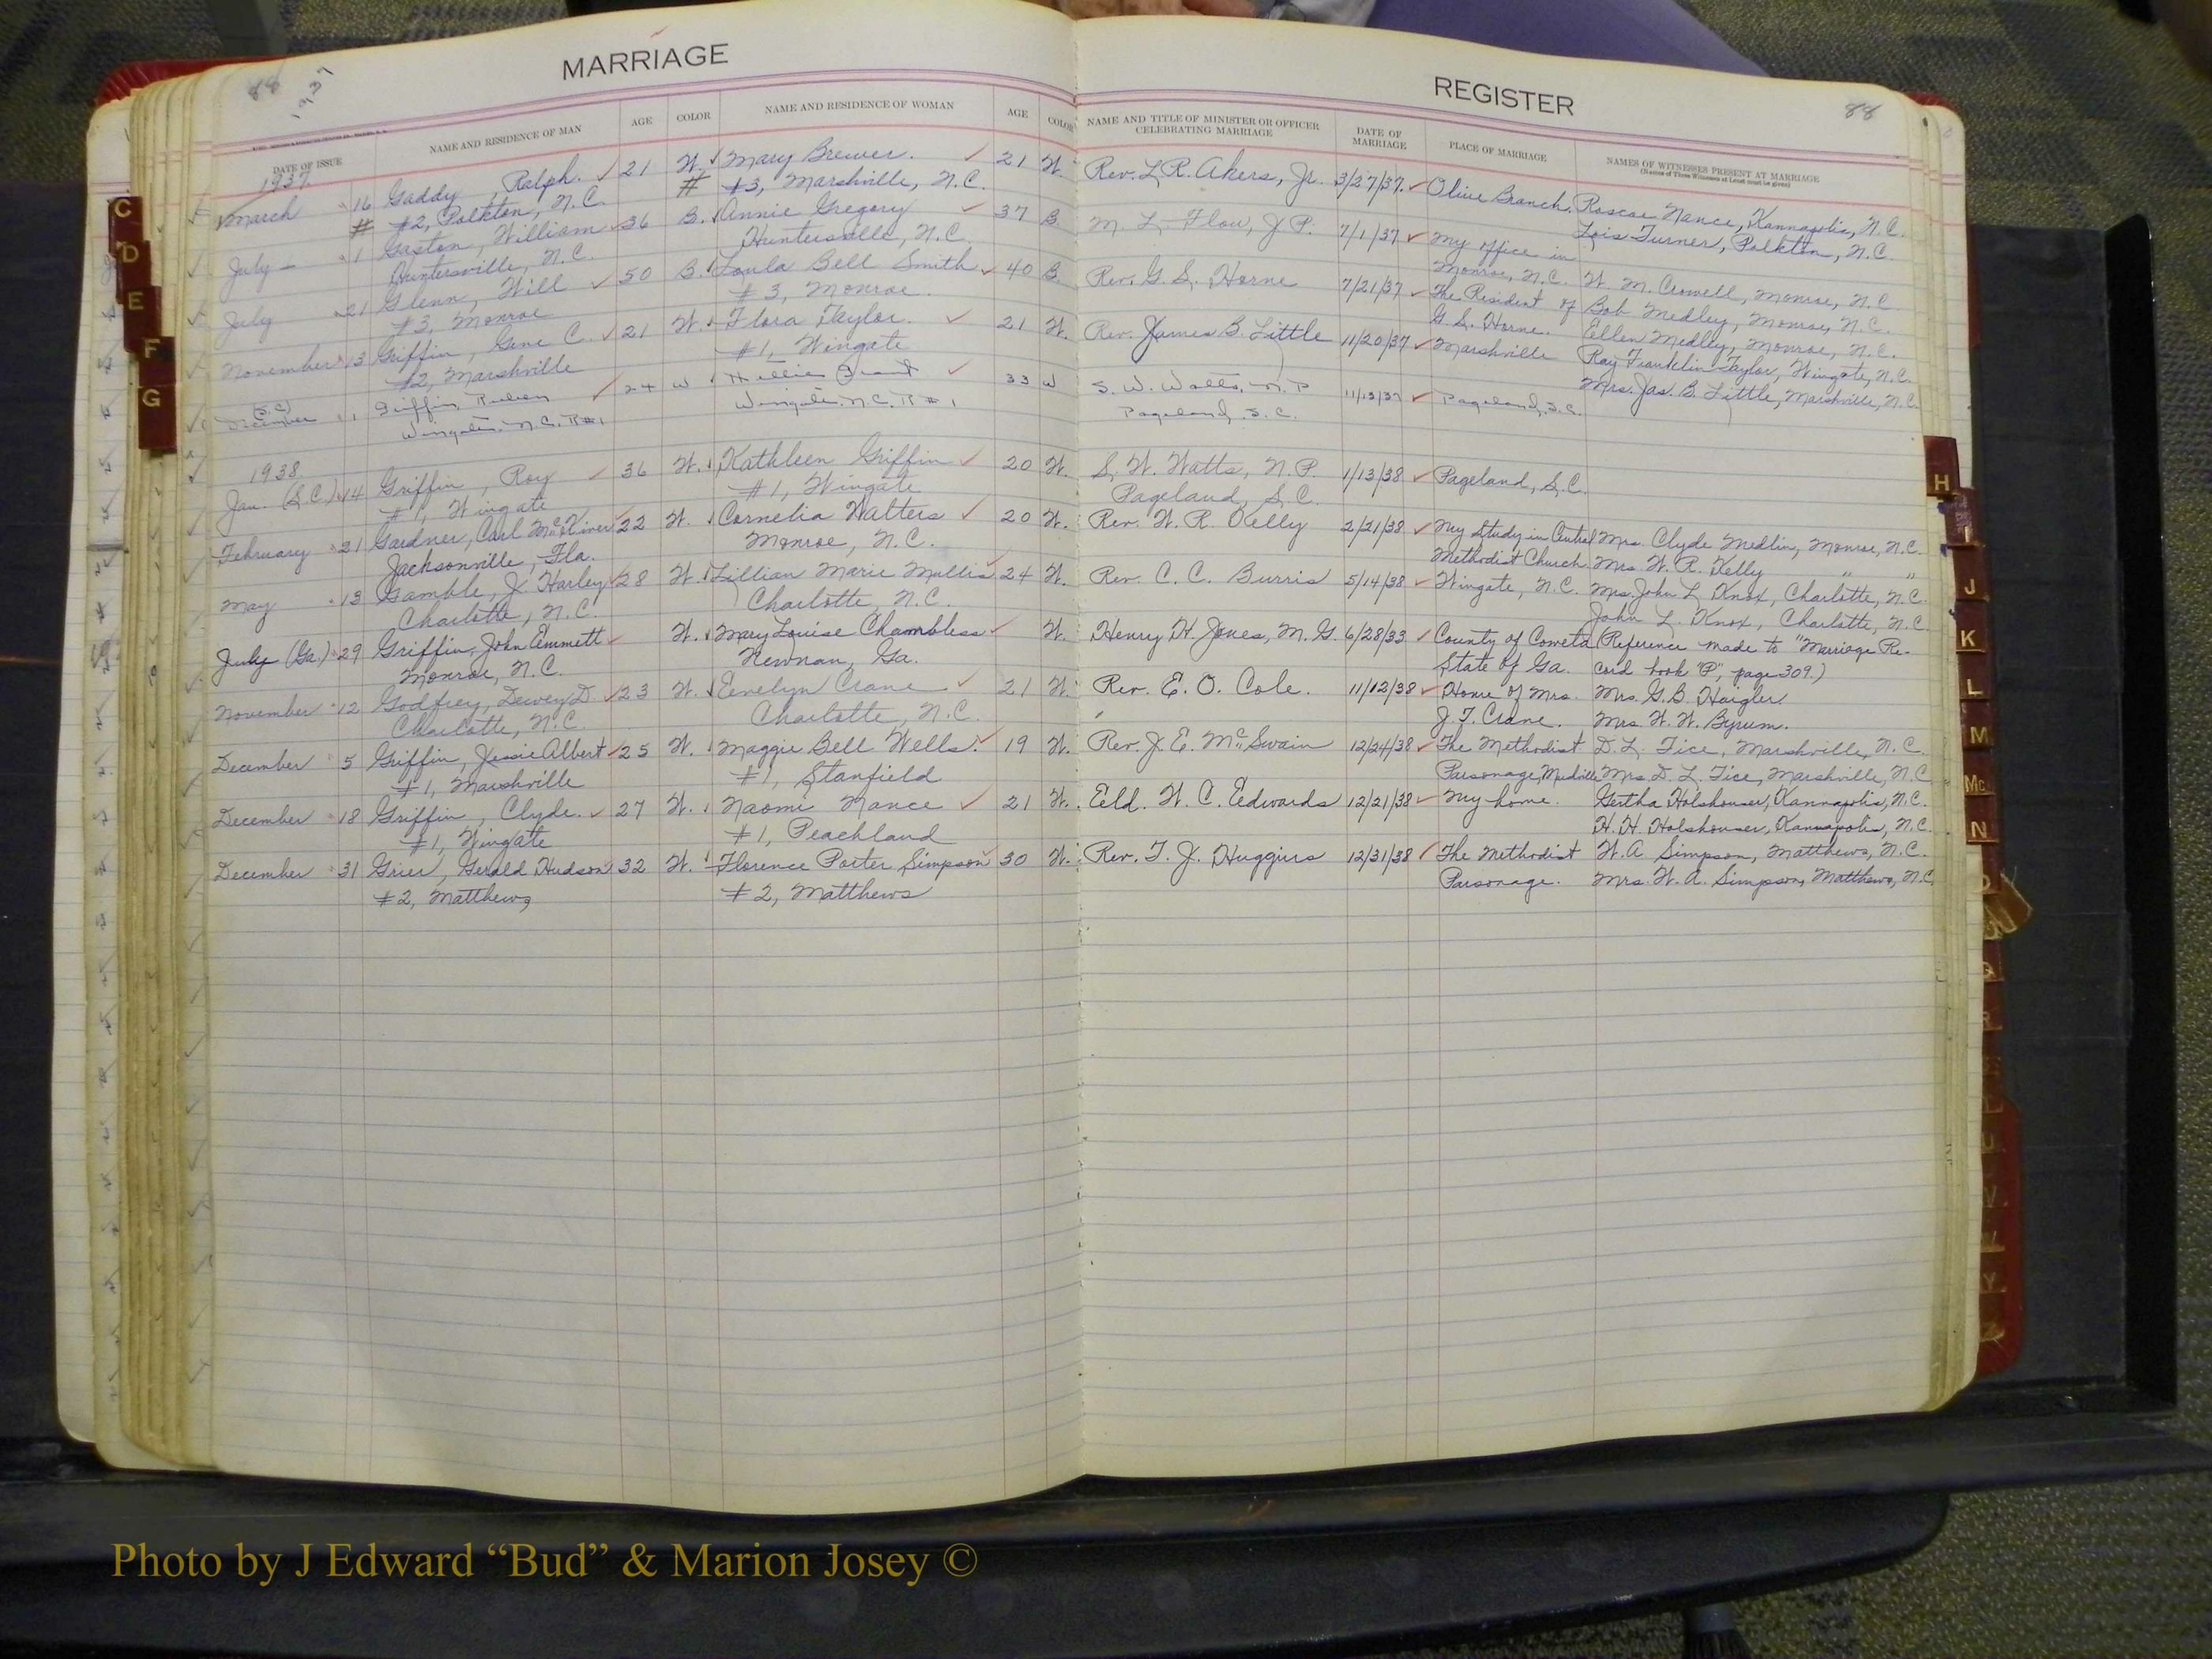 88
1937
MARRIAGE
REGISTER
88
DATE OF ISSUE
NAME AND RESIDENCE OF MAN
AGE
COLOR
NAME AND RESIDENCE OF WOMAN
AGE
COLOR
NAME AND TITLE OF MINISTER OR OFFICER
CELEBRATING MARRIAGE
DATE OF
MARRIAGE
PLACE OF MARRIAGE
NAMES OF WITNESSES PRESENT AT MARRIAGE
(Names of Three Witnesses at Least must be given)
1937
March 16 Gaddy, Ralph. 21 W. Mary Brewer. 21 W. Rev. L.R. Akers, Jr. 3/27/37. Olive Branch. Roscoe Nance, Kannapolis, N.C.
# #2, Polkton, N.C. # #3, Marshville, N.C. Lois Turner, Polkton, N.C.
July 1 Gaston, William 36 B. Annie Gregory 37 B. M. L. Flow, J.P. 7/1/37 My office in
Huntersville, N.C. Huntersville, N.C. Monroe, N.C. W. M. Crowell, Monroe, N.C.
July 21 Glenn, Will 50 B. Loula Bell Smith 40 B. Rev. G. S. Horne 7/21/37 The Resident of Bob Medley, Monroe, N.C.
#3, Monroe #3, Monroe. G. S. Horne. Ellen Medley, Monroe, N.C.
November 13 Griffin, Gene C. 21 W. Flora Taylor. 21 W. Rev. James B. Little 11/20/37 Marshville Ray Franklin Taylor, Wingate, N.C.
#2, Marshville #1, Wingate Mrs. Jas. B. Little, Marshville, N.C.
(S.C.)
December 1 Griffin, 24 W 33 W S. W. Watts, N.P. 11/13/37 Pageland, S.C.
Wingate, N.C. R#1 Wingate, N.C. R#1 Pageland, S.C.
1938
Jan. (S.C.) 14 Griffin, Roy 36 W. Kathleen Griffin 20 W. S. W. Watts, N.P. 1/13/38 Pageland, S.C.
#1, Wingate #1, Wingate Pageland, S.C.
February 21 Gardner, Carl McKiver 22 W. Cornelia Walters 20 W. Rev. W. R. Kelly 2/21/38 My Study in Central Mrs. Clyde Medlin, Monroe, N.C.
Jacksonville, Fla. Monroe, N.C. Methodist Church. Mrs. W. R. Kelly " "
May 13 Gamble, J. Harley 28 W. Lillian Marie Mullis 24 W. Rev. C. C. Burris 5/14/38 Wingate, N.C. Mrs. John L. Knox, Charlotte, N.C.
Charlotte, N.C. Charlotte, N.C. John L. Knox, Charlotte, N.C.
July (Ga.) 29 Griffin, John Emmett W. Mary Louise Chambless W. Henry H. Jones, M.G. 6/28/33. County of Coweta (Reference made to "Marriage Re-
Monroe, N.C. Newnan, Ga. State of Ga. cord book "P", page 309.)
November 12 Godfrey, Dewey D. 23 W. Eevelyn Crane 21 W. Rev. E. O. Cole. 11/12/38 Home of Mrs. Mrs. G.B. Haigler.
Charlotte, N.C. Charlotte, N.C. J. T. Crane. Mrs. W. W. Byrum.
December 5 Griffin, Jessie Albert 25 W. Maggie Bell Wells. 19 W. Rev. J. E. McSwain 12/24/38 The Methodist D. L. Tice, Marshville, N.C.
#1, Marshville #1, Stanfield Parsonage, Mrs. D. L. Tice, Marshville, N.C.
December 18 Griffin, Clyde. 27 W. Naomi Nance 21 W. Eeld. W. C. Eedwards 12/21/38 My home. Gertha Holshouser, Kannapolis, N.C.
#1, Wingate #1, Peachland H. H. Holshouser, Kannapolis, N.C.
December 31 Grier, Gerald Hudson 32 W. Florence Porter Simpson 30 W. Rev. T. J. Huggins 12/31/38 The Methodist W. A. Simpson, Matthews, N.C.
#2, Matthews #2, Matthews Parsonage. Mrs. W. A. Simpson, Matthews, N.C.
C
D
E
F
G
H
I
J
K
L
M
Mc
N
O
Q
R
U
V
Y
Photo by J Edward “Bud” & Marion Josey ©